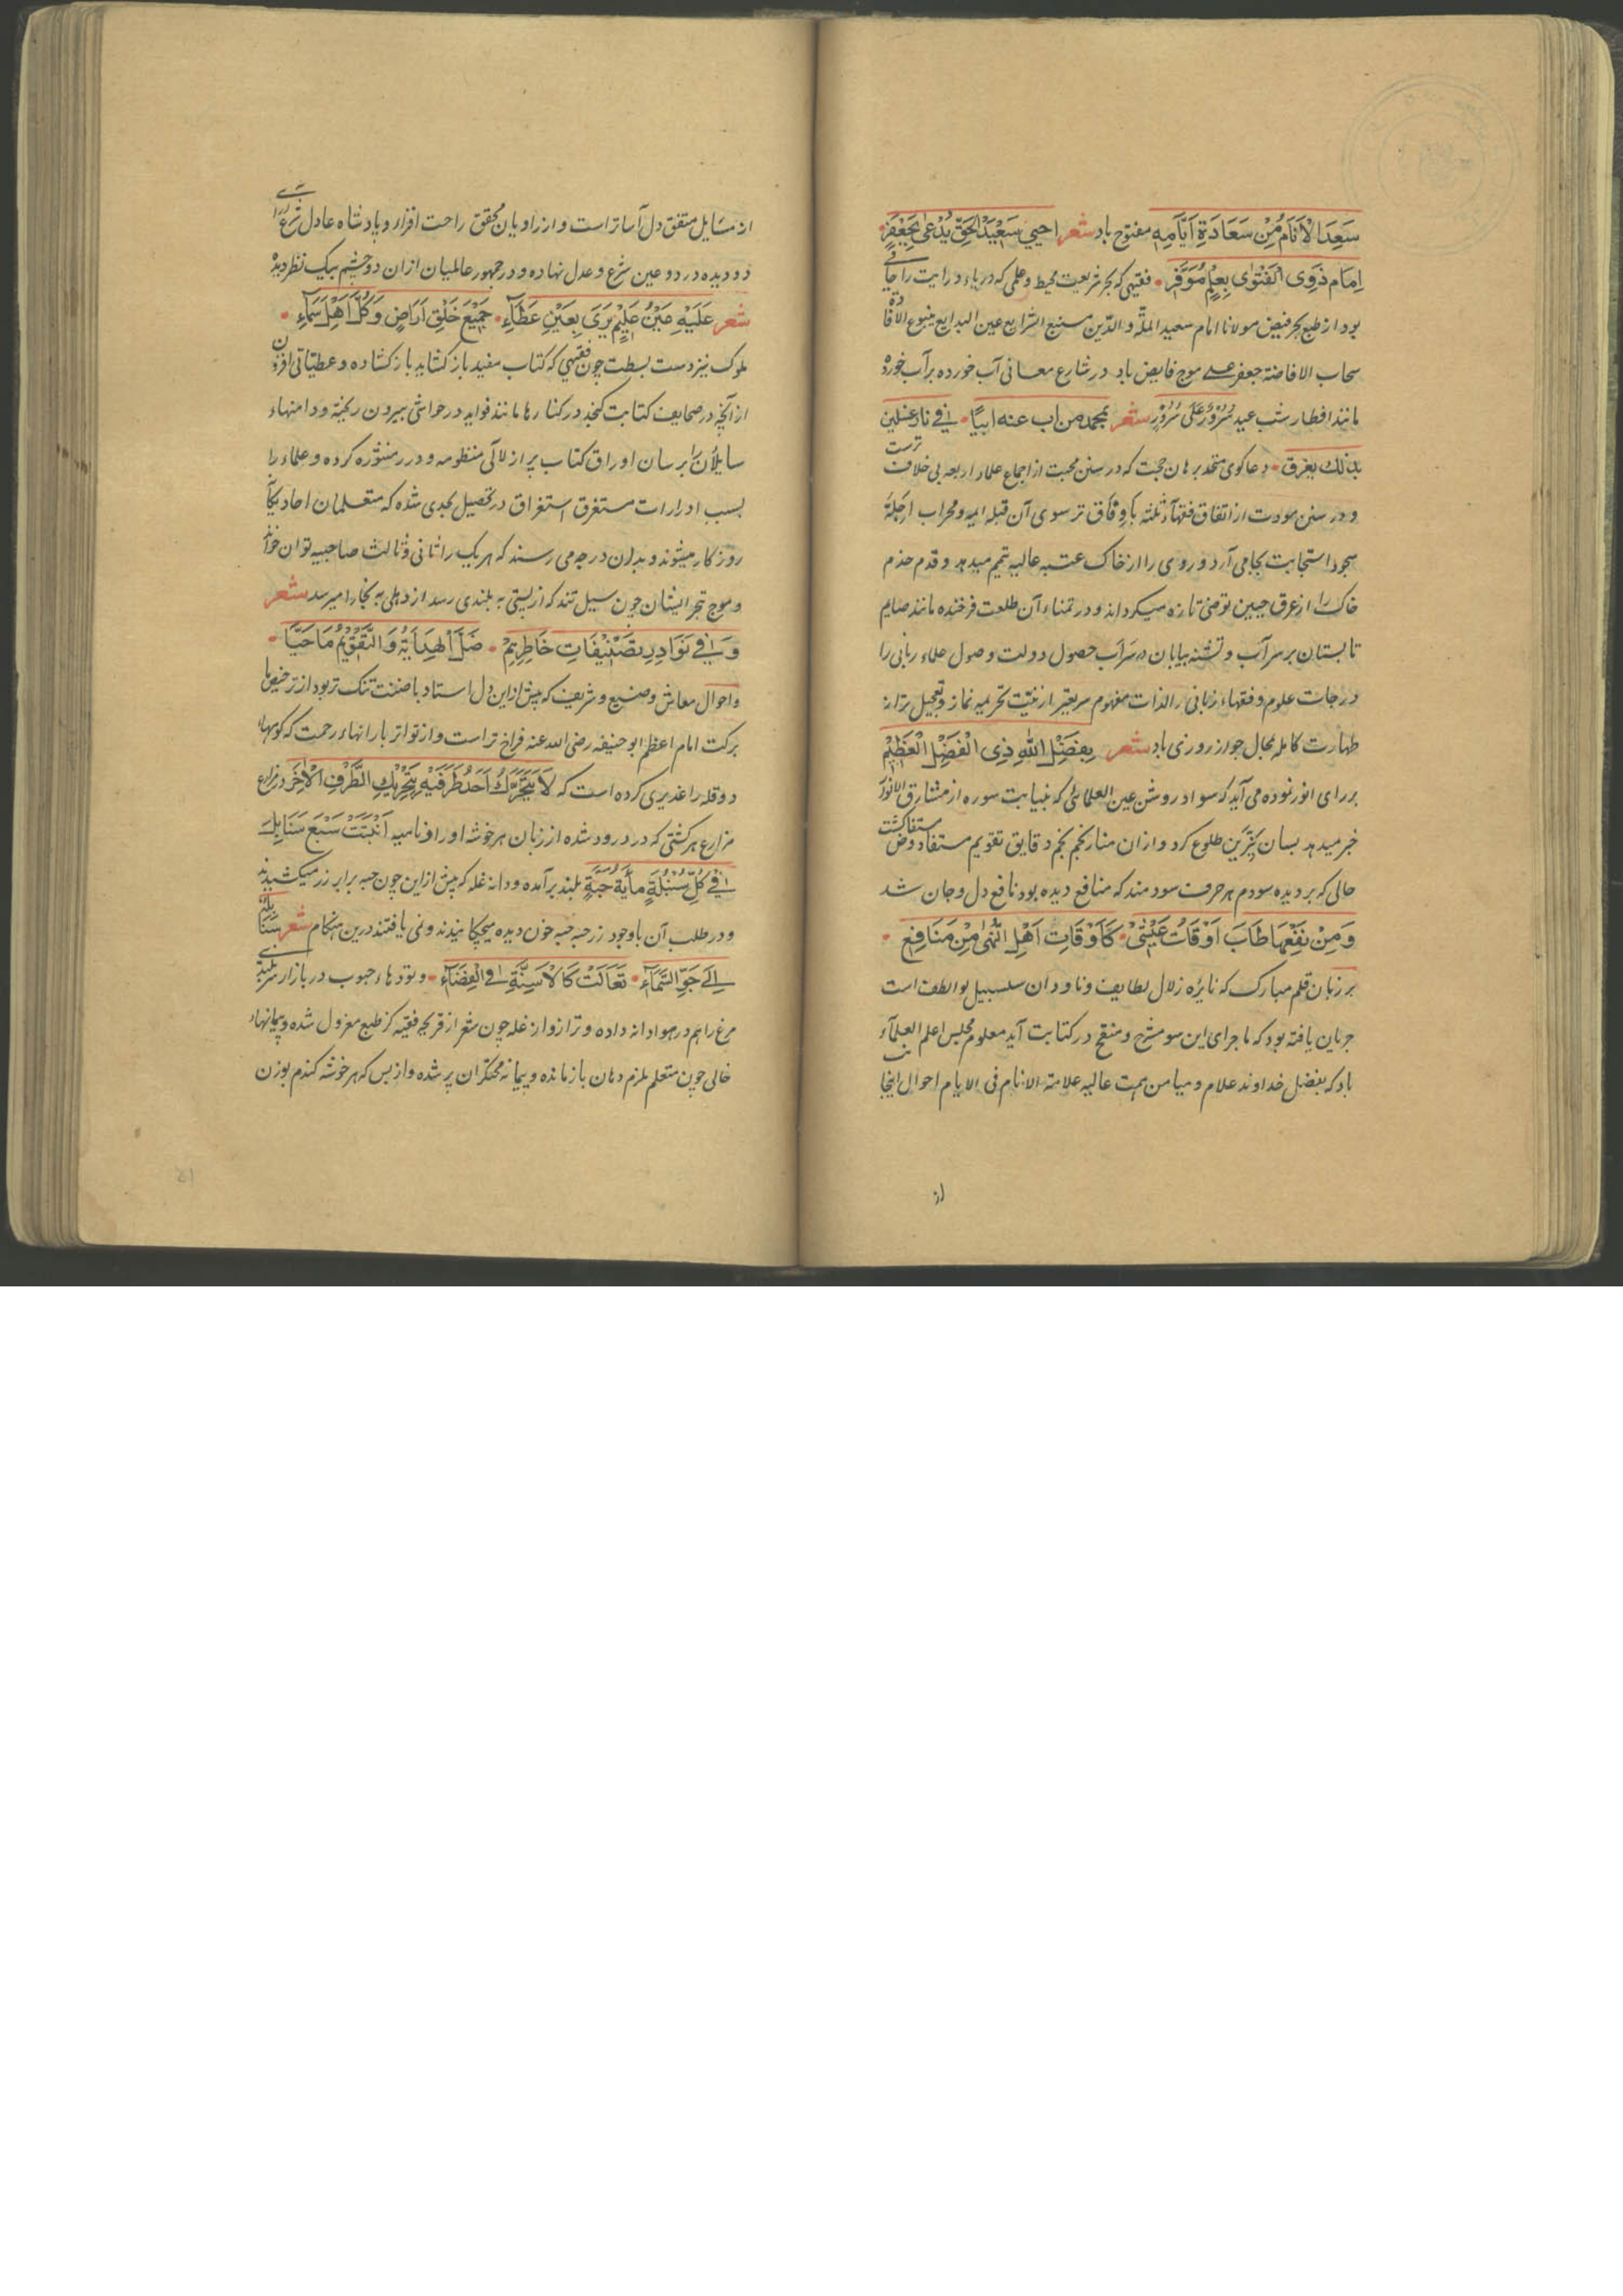 سَعِدَ الْاَنَامُ مِنْ سَعَادَةِ اَيَّامِهٖ مفتوح باد شعر احيي سَعِيْدَ الحَقِّ يُدْعٰى بِجَعْفَرٍ
اِمَام ذَوِى الفَتْوٰى بِعِلْمٍ مُوَفَّرٍ فقیهی که بحر شریعت محیط و علمی که دریاء درایت را جای
بود از طبع بحر فیض مولانا امام سعید الملّة و الدّین منبع الشرایع عین البدایع ینبوع الافادة
سحاب الافاضة جعفر علی موج فایض باد در شارع معانی آب خورده بر آب خورد
مانند افطار شب عید سُرُوْرٌ عَلٰى سُرُوْرٍ شعر بمحمد من اب عنه ابیًا فی
بذلك یغرق دعاکوی متحد برهان حجت که در سنن محبت از اجماع علماء اربعه بی خلاف ترست
و در سنن مودت از اتفاق فقهآء ثلثه با وفاق تر سوی آن قبله امید و محراب
سجود استجابت بجا می آرد و روی را از خاک عتبه عالیه تیمم میدهد و قدم خدم
خاک را از عرق جبین توضی تازه میکرداند و در تمناء آن طلعت فرخنده مانند صایم
تابستان بر سر آب و تشنه بیابان در سراب حصول دولت وصول علماء ربانی را
درجات علوم و فقهاء زبانی را لذات مفهوم سریعتر از نیّت تحریمه نماز و تعجیل تر از
طهارت کامله بحال جواز روزی باد شعر بِفَضْلِ اللهِ ذِى الْفَضْلِ الْعَظِيْمِ
بر رای انور نموده می آید که سواد روشن عین العلمائی که نیابت سوره از مشارق الانوار
خبر میدهد بسان نیّرین طلوع کرد و از ان منار نجم نجم دقایق تقویم مستفاد و مستفا کشت
حالی که بر دیده سودم هر حرف سودمند که منافع دیده بود نافع دل و جان شد
وَمِنْ نَفْعِهَا طَابَ اَوْقَاتُ عَيْشِىْ كَاَوْقَاتِ اَهْلِ النُّهٰى مِنْ مَنَافِع
بر زبان قلم مبارک که نایژه زلال لطایف و ناودان سلسبیل بو الطف است
جریان یافته بود که ماجرای این سو مشرح و منقح در کتابت آید معلوم مجلس اعلم العلمآء
باد که بفضل خداوند علام و میامن همت عالیه علامة الانام فی الایام احوال اینجا
از
از مسایل متفق دل آساتر است و از راویان محقق راحت افزاء و پادشاه عادل
دو دیده در دو عین شرع و عدل نهاده و در جمهور عالمیان از ان دو چشم بیک نظر دیده
شعر عَلَيْهِ عَيْنُ عَلِيْمٍ يَرَى بِعَيْنِ عَطَآءِ جَمِيْعَ خَلْقِ اَرَاضٍ وَكُلَّ اَهْلِ سَمَآءِ
ملوک نیز دست بسطت چون فقیهی که کتاب مفید باز کشاید باز کشاده و عطیاتی افزون
از آنچه در صحایف کتابت کنجد در کنارها مانند فواید در حواشی بیرون ریخته و دامنهاء
سایلان را بر سان اوراق کتاب پر از لآلی منظومه و درر منثوره کرده و علماء را
بسبب ادرارات مستغرق استغراق در تحصیل بحدی شده که متعلمان احاد یکان
روزکار میشوند و بدان درجه می رسند که هر یک را ثانی و ثالث صاحبیه توان خواند
و موج تبحر ایشان چون سیل تند که از پستی به بلندی رسد از دهلی به بخارا میرسد شعر
وَ فِى نَوَادِرِ تَصْنِيْفَاتِ خَاطِرِهِمْ ضَلَّ الْهِدَايَةُ وَالتَّقْوِيْمُ مَا حَيَّا
و احوال معاش وضیع و شریف که پیش ازین دل استاد باضنت تنک تر بود از
برکت امام اعظم ابو حنیفه رضی الله عنه فراخ تر است و از تواتر بارانهاء رحمت که کوهها
دو قله را غدیری کرده است که لَا يَتَحَرَّكُ اَحَدُ طَرَفَيْهِ بِتَحْرِيْكِ الطَّرَفِ الْاٰخَرِ در مزارع
مزارع هر کشتی که درو درود شده از زبان هر خوشه اوراد نامیه اَنْبَتَتْ سَبْعَ سَنَابِلَ
فِىْ كُلِّ سُنْبُلَةٍ مِأَيَةُ حَبَّةٍ بلند برآمده و دانه غله که پیش ازین چون حبه برابر زر میکشیدند
و در طلب آن باوجود زر حبه حبه خون دیده میچکانیدند و نمی یافتند درین هنکام شعر سَنَابِلُه
اِلٰى جَوِّ السَّمَآءِ تَعَالَتْ كَالْاَسِنَّةِ فى الْفِضَآءِ و تودهاء حبوب در بازار سربلندی
مرغ را هم در هوا دانه داده و ترازو از غله چون شعر از قریحه فقیه کز طبع معزول شده و پیمانها
خالی چون متعلم ملزم دهان باز مانده و پیمانه محتکران پر شده و از بس که هر خوشه کندم بوزن